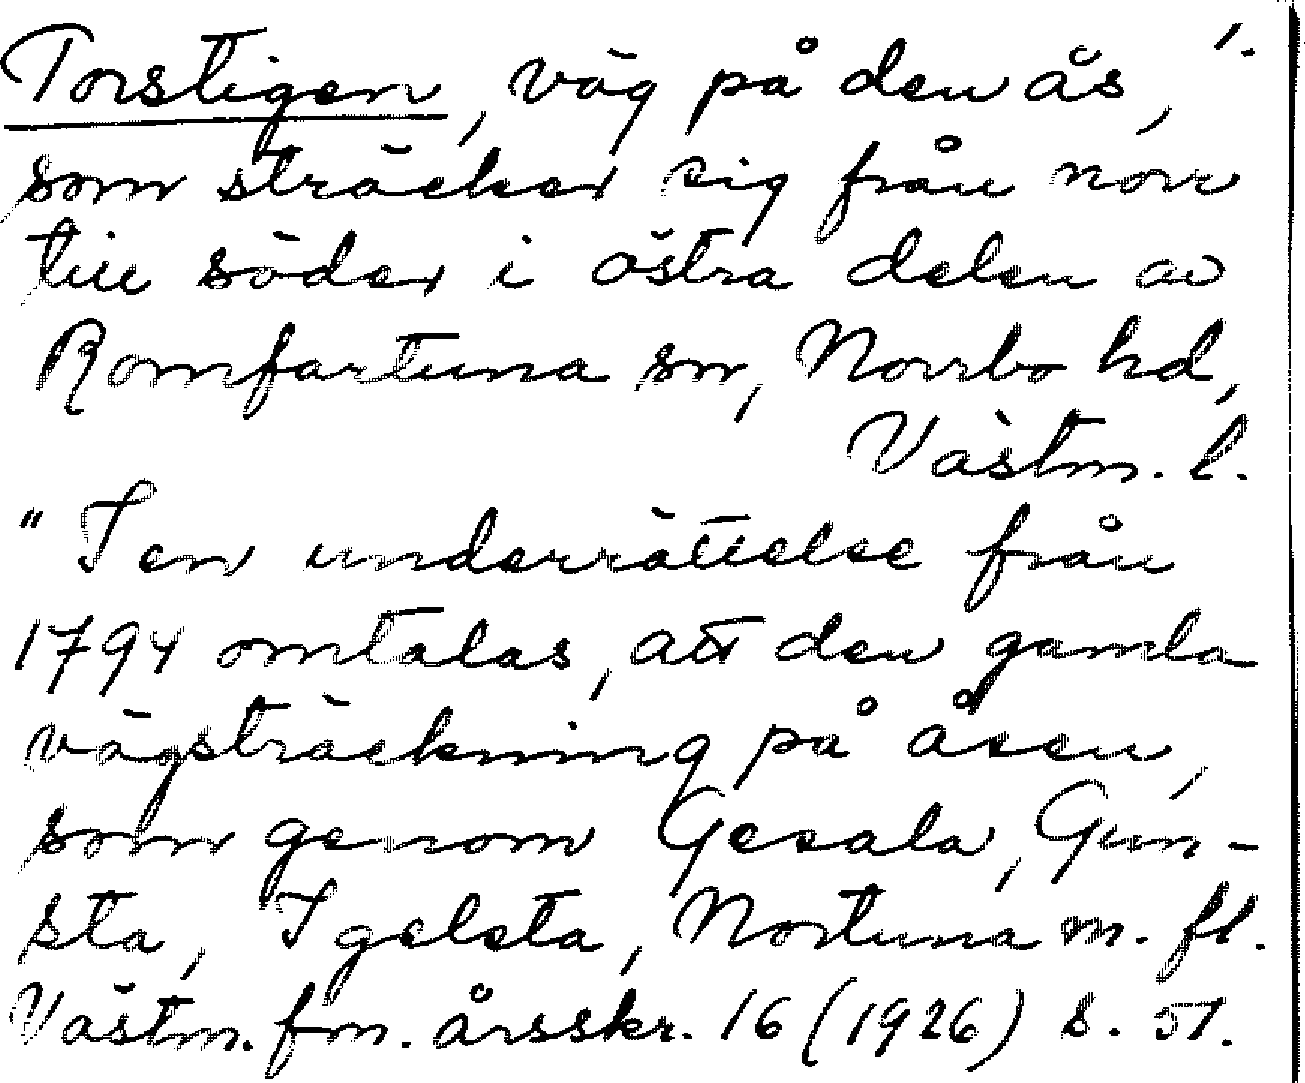 Torstigen, väg på den ås,
som sträcker sig från norr
till söder i östra delen av
Romfartuna sn, Norrbo hd,
Västm. l.
"I en underrättelse från
1794 omtalas, att den gamla
vägsträckning på åsen,
som genom Gesala, Gun-
sta, Igelsta, Nortuna m. fl.
Västm. fm. årsskr. 16 (1926) s. 51.